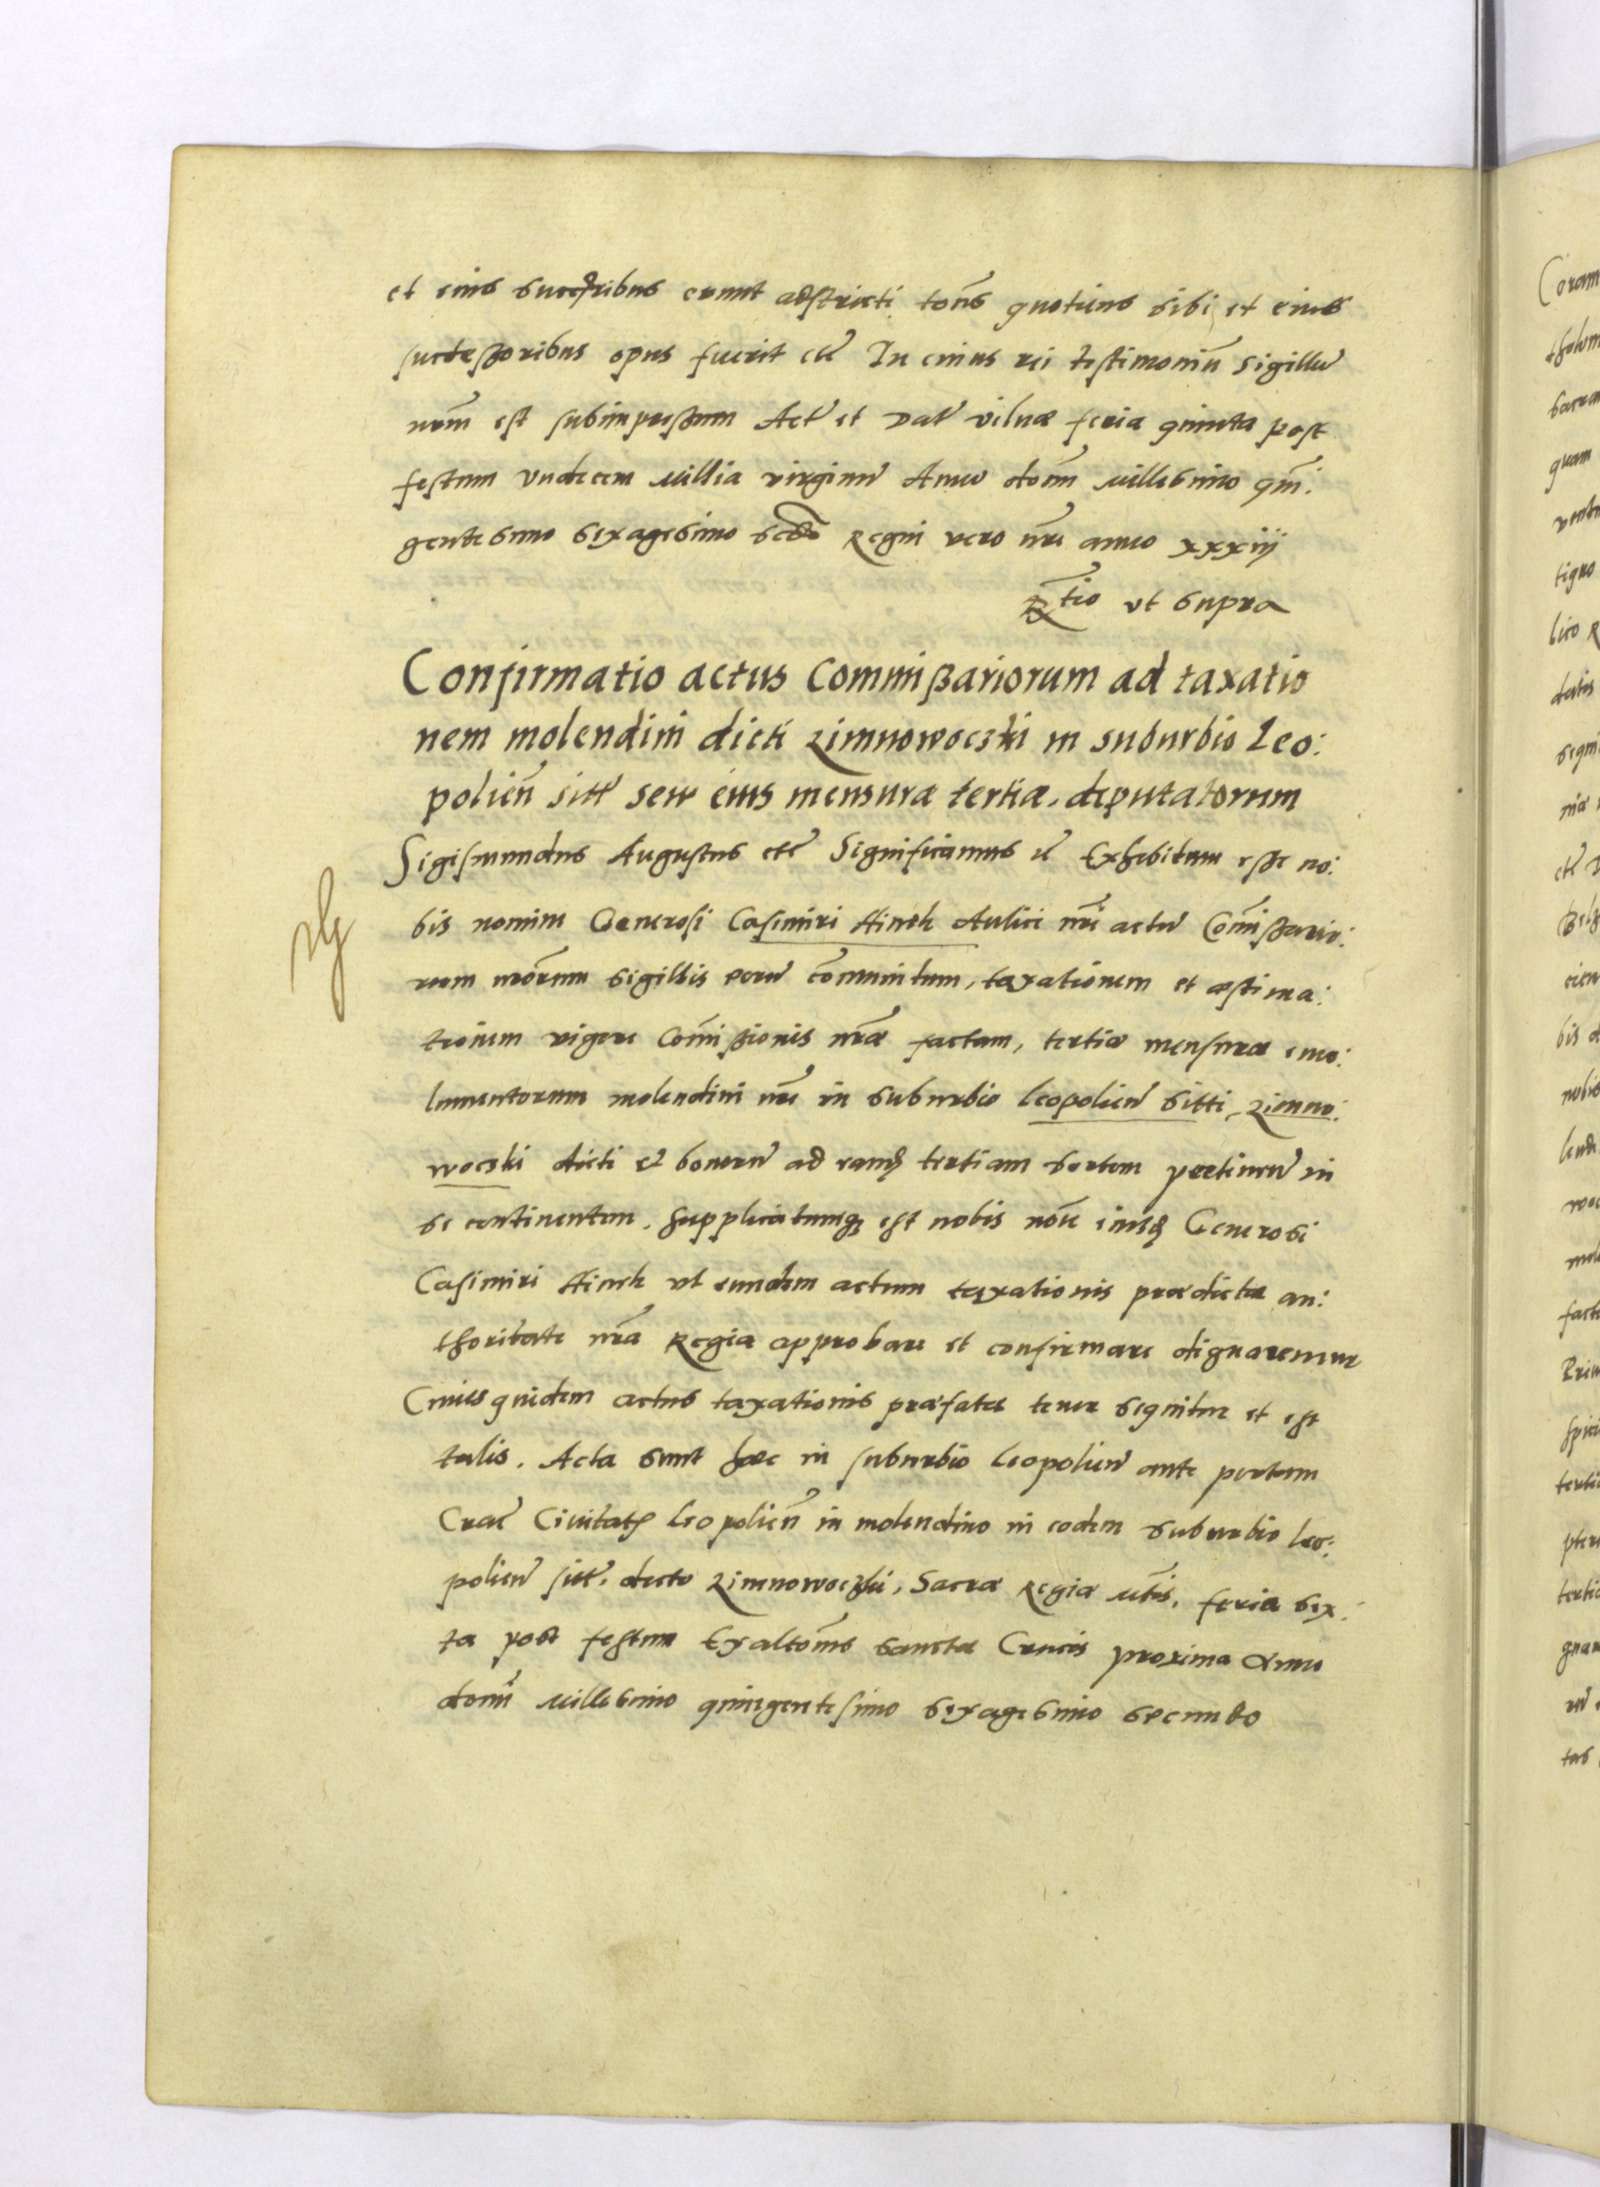 et eius succribus erunt adstricti toñs quotiens sibi et eius
successoribus opus fuerit etc̃ In cuius rei testimoniũ Sigillũ
nrm̃ est subimpressum Act̃ et Dat̃ Vilnæ feria quinta post
festum Vndecem Millia virginũ Anno dom̃ Millesimo qũi:
gentesimo sexagesimo secdõ Regni vero nr̃i anno xxxiij
Rtio vt supra
Confirmatio actus Commißariorum ad taxatio
nem molendini dicti Zimnowoczki in suburbio Leo:
polieñ sitt̃ seu eius mensuræ tertiæ, deputatorum
Sigismundus Augustus etc̃ Significamus etc̃ Exhibitum esse no:
bis nomine Generosi Casimiri Hinek Aulici nr̃i actũ Com̃ißario:
rum nrõrum sigillis eorũ com̃unitum, taxationem et æstima:
tionem vigore Com̃ißionis nr̃æ factam, tertiæ mensuræ emo:
lumentorum molendini nr̃i in suburbio Leopolień sitti, Zimno:
woczki dicti et bonorũ ad eamq̃ tertiam sortem pertineñ in
se continentem. Supplicatumq̃ est nobis noĩe eiusq̃ Generosi
Casimiri Hinek vt eundem actum taxationis prædictæ au:
thoritate nr̃a Regia approbare et confirmare dignaremur
Cuius quidem actus taxationis præfatæ tenor sequitur et est
talis. Acta sunt hæc in suburbio Leopolieñ ante portam
Crac̃ Civitat̃ Leopolieñ in molendino in eodem suburbio Leo:
polieñ sitt̃. dicto Zimnowoczki, Sacræ Regiæ Mt̃is, feria sex:
ta post festum Exaltom̃s sanctæ Crucis proxima Anno
dom̃ Millesimo quingentesimo sexagesimo secundo